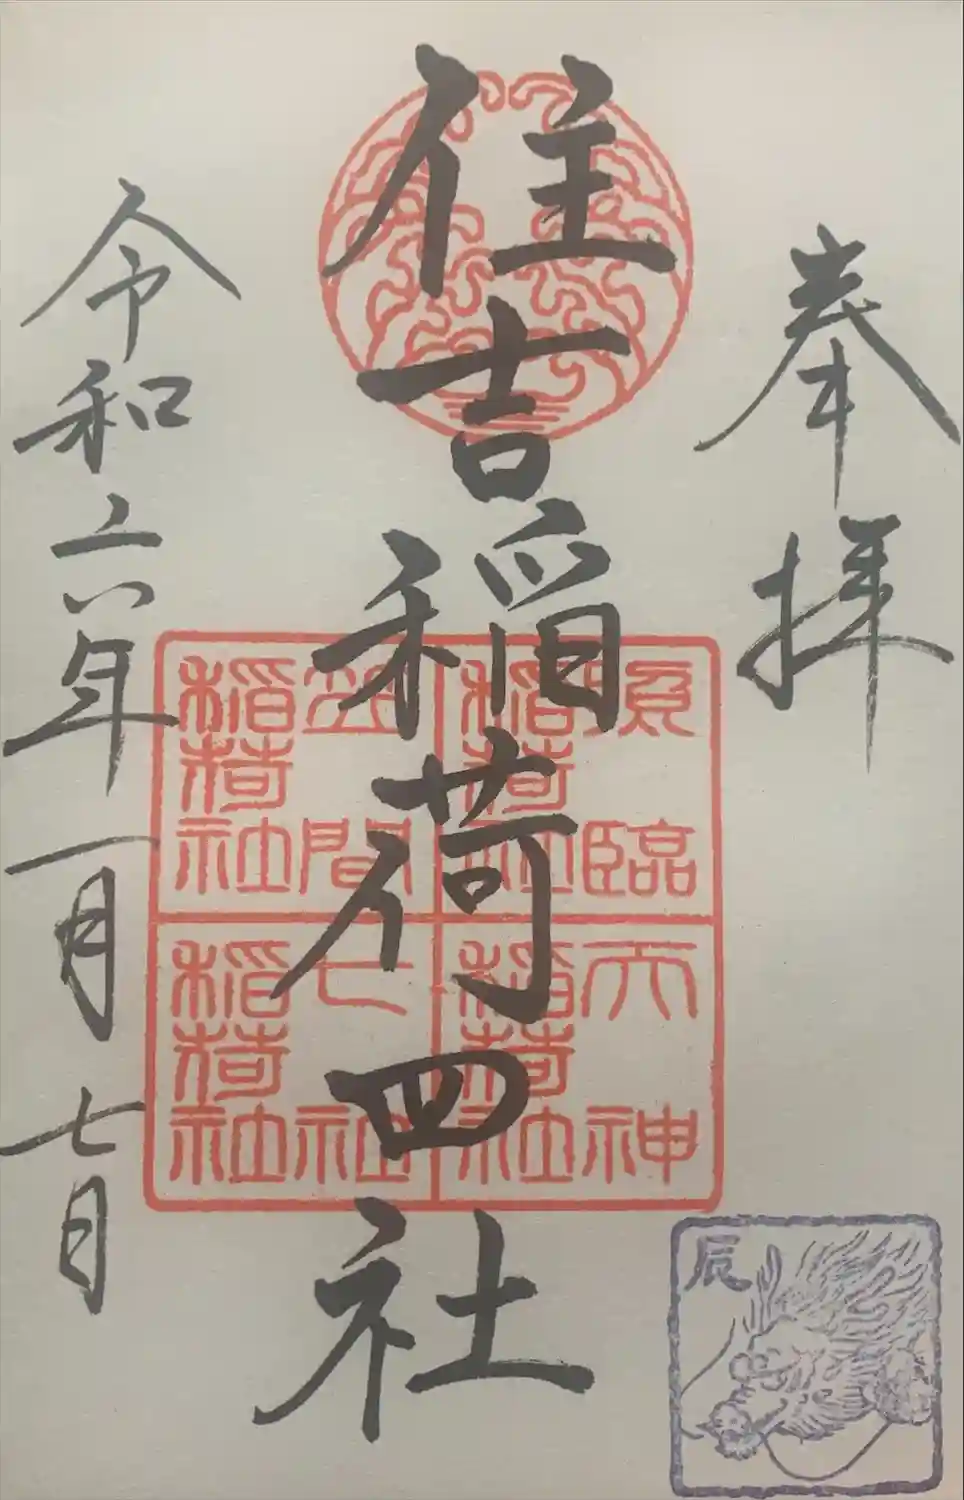 奉拝
住吉稲荷四社
令和六年一月七日
臨
稲荷社
天神
稲荷社
笠間
稲荷社
七社
稲荷社
辰